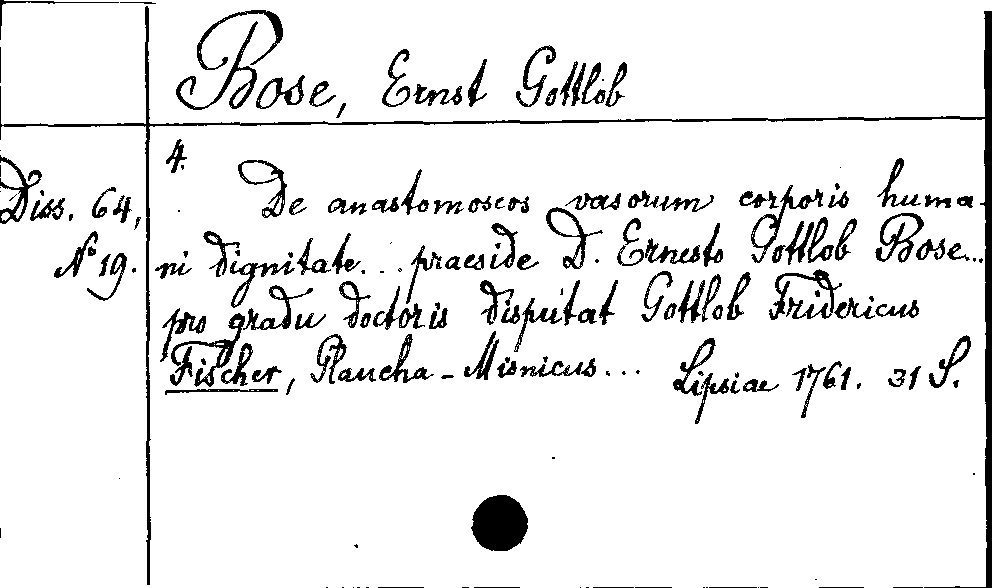 Bose, Ernst Gottlob
4.
Diss. 64,
No 19.
De anastomoseos vasorum corporis huma-
ni dignitate... praeside D. Ernesto Gottlob Bose...
pro gradu doctoris disputat Gottlob Fridericus
Fischer, Plaucha-Misnicus...
Lipsiae 1761. 31 S.